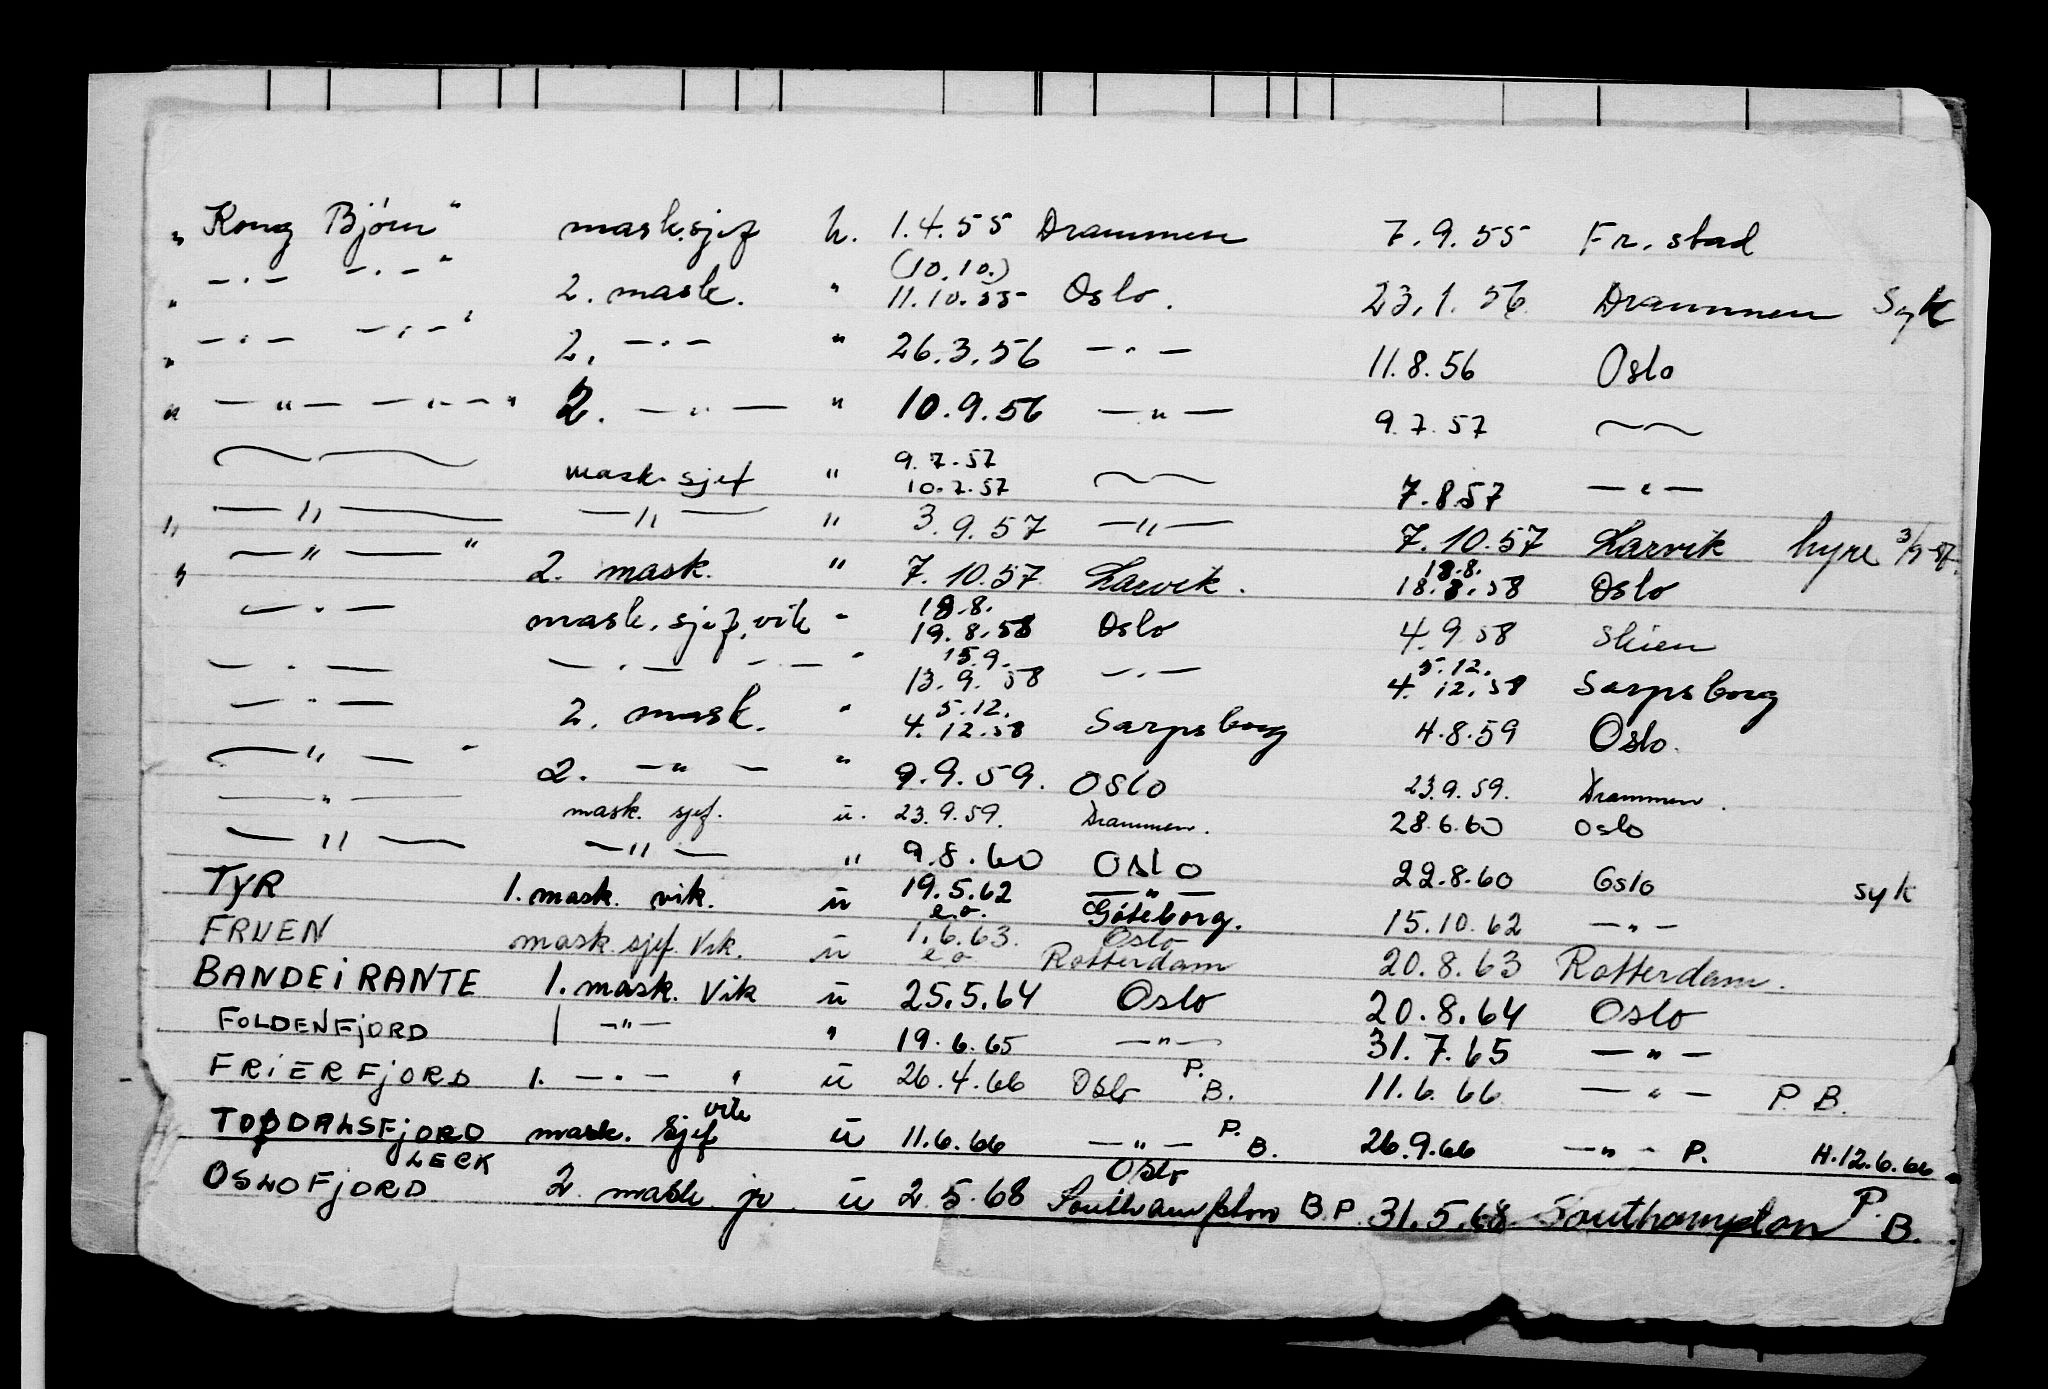 „ Kong Bjørn" mask.sjef h. 1.4.55 Drammen 7.9.55 Fr.stad
(10.10.)
„ —·— —·—" 2. mask. " 11.10.55 Oslo. 23.1.56 Drammen Syk
„ —·— —·—" 2. —·— " 26.3.56 —·— 11.8.56 Oslo
„ —"— —"—" 2. —"— " 10.9.56 —"— 9.7.57 ~~
9.7.57
~~ mask.sjef " 10.7.57 ~~ 7.8.57 —"—
„ —"— —"— " 3.9.57 —"— 7.10.57 Larvik hyre 3/9-57.
„ —"— " 2. mask. " 7.10.57 Larvik. 18.8.58 Oslo
18.8. 18.8.
—·— mask.sjef.vik " 19.8.58 Oslo 4.9.58 Skien
15.9. 5.12.
—·— —·— —·— " 13.9.58 —·— 4.12.58 Sarpsborg
5.12.
—·— 2. mask. " 4.12.58 Sarpsborg 4.8.59 Oslo.
—"— " 2. —"— " 9.9.59. Oslo 23.9.59. Drammen.
—"— mask. sjef. u. 23.9.59. Drammen. 28.6.60 Oslo
—"— —"— " 9.8.60 Oslo 22.8.60 Oslo syk
TYR 1. mask. vik. u 19.5.62 —"— 15.10.62 —"—
e.o. Göteborg.
FRUEN mask.sjef. Vik. u 1.6.63. Oslo 20.8.63 Rotterdam.
e.o Rotterdam
BANDEiRANTE 1. mask. Vik u 25.5.64 Oslo 20.8.64 Oslo
FOLDENFjORD 1 —"— " 19.6.65 —"— 31.7.65 —"—
FRiERFjORD 1. —"— " u 26.4.66 Oslo P.B. 11.6.66 —"— P.B.
TOPDALSFjORD mask. sjef vik u 11.6.66 —"— P.B. 26.9.66 —"— P. H.12.6.66
LECK Oslo
OSLOFjORD 2. mask. jr. u 2.5.68 Southampton B.P. 31.5.68 Southampton P.B.